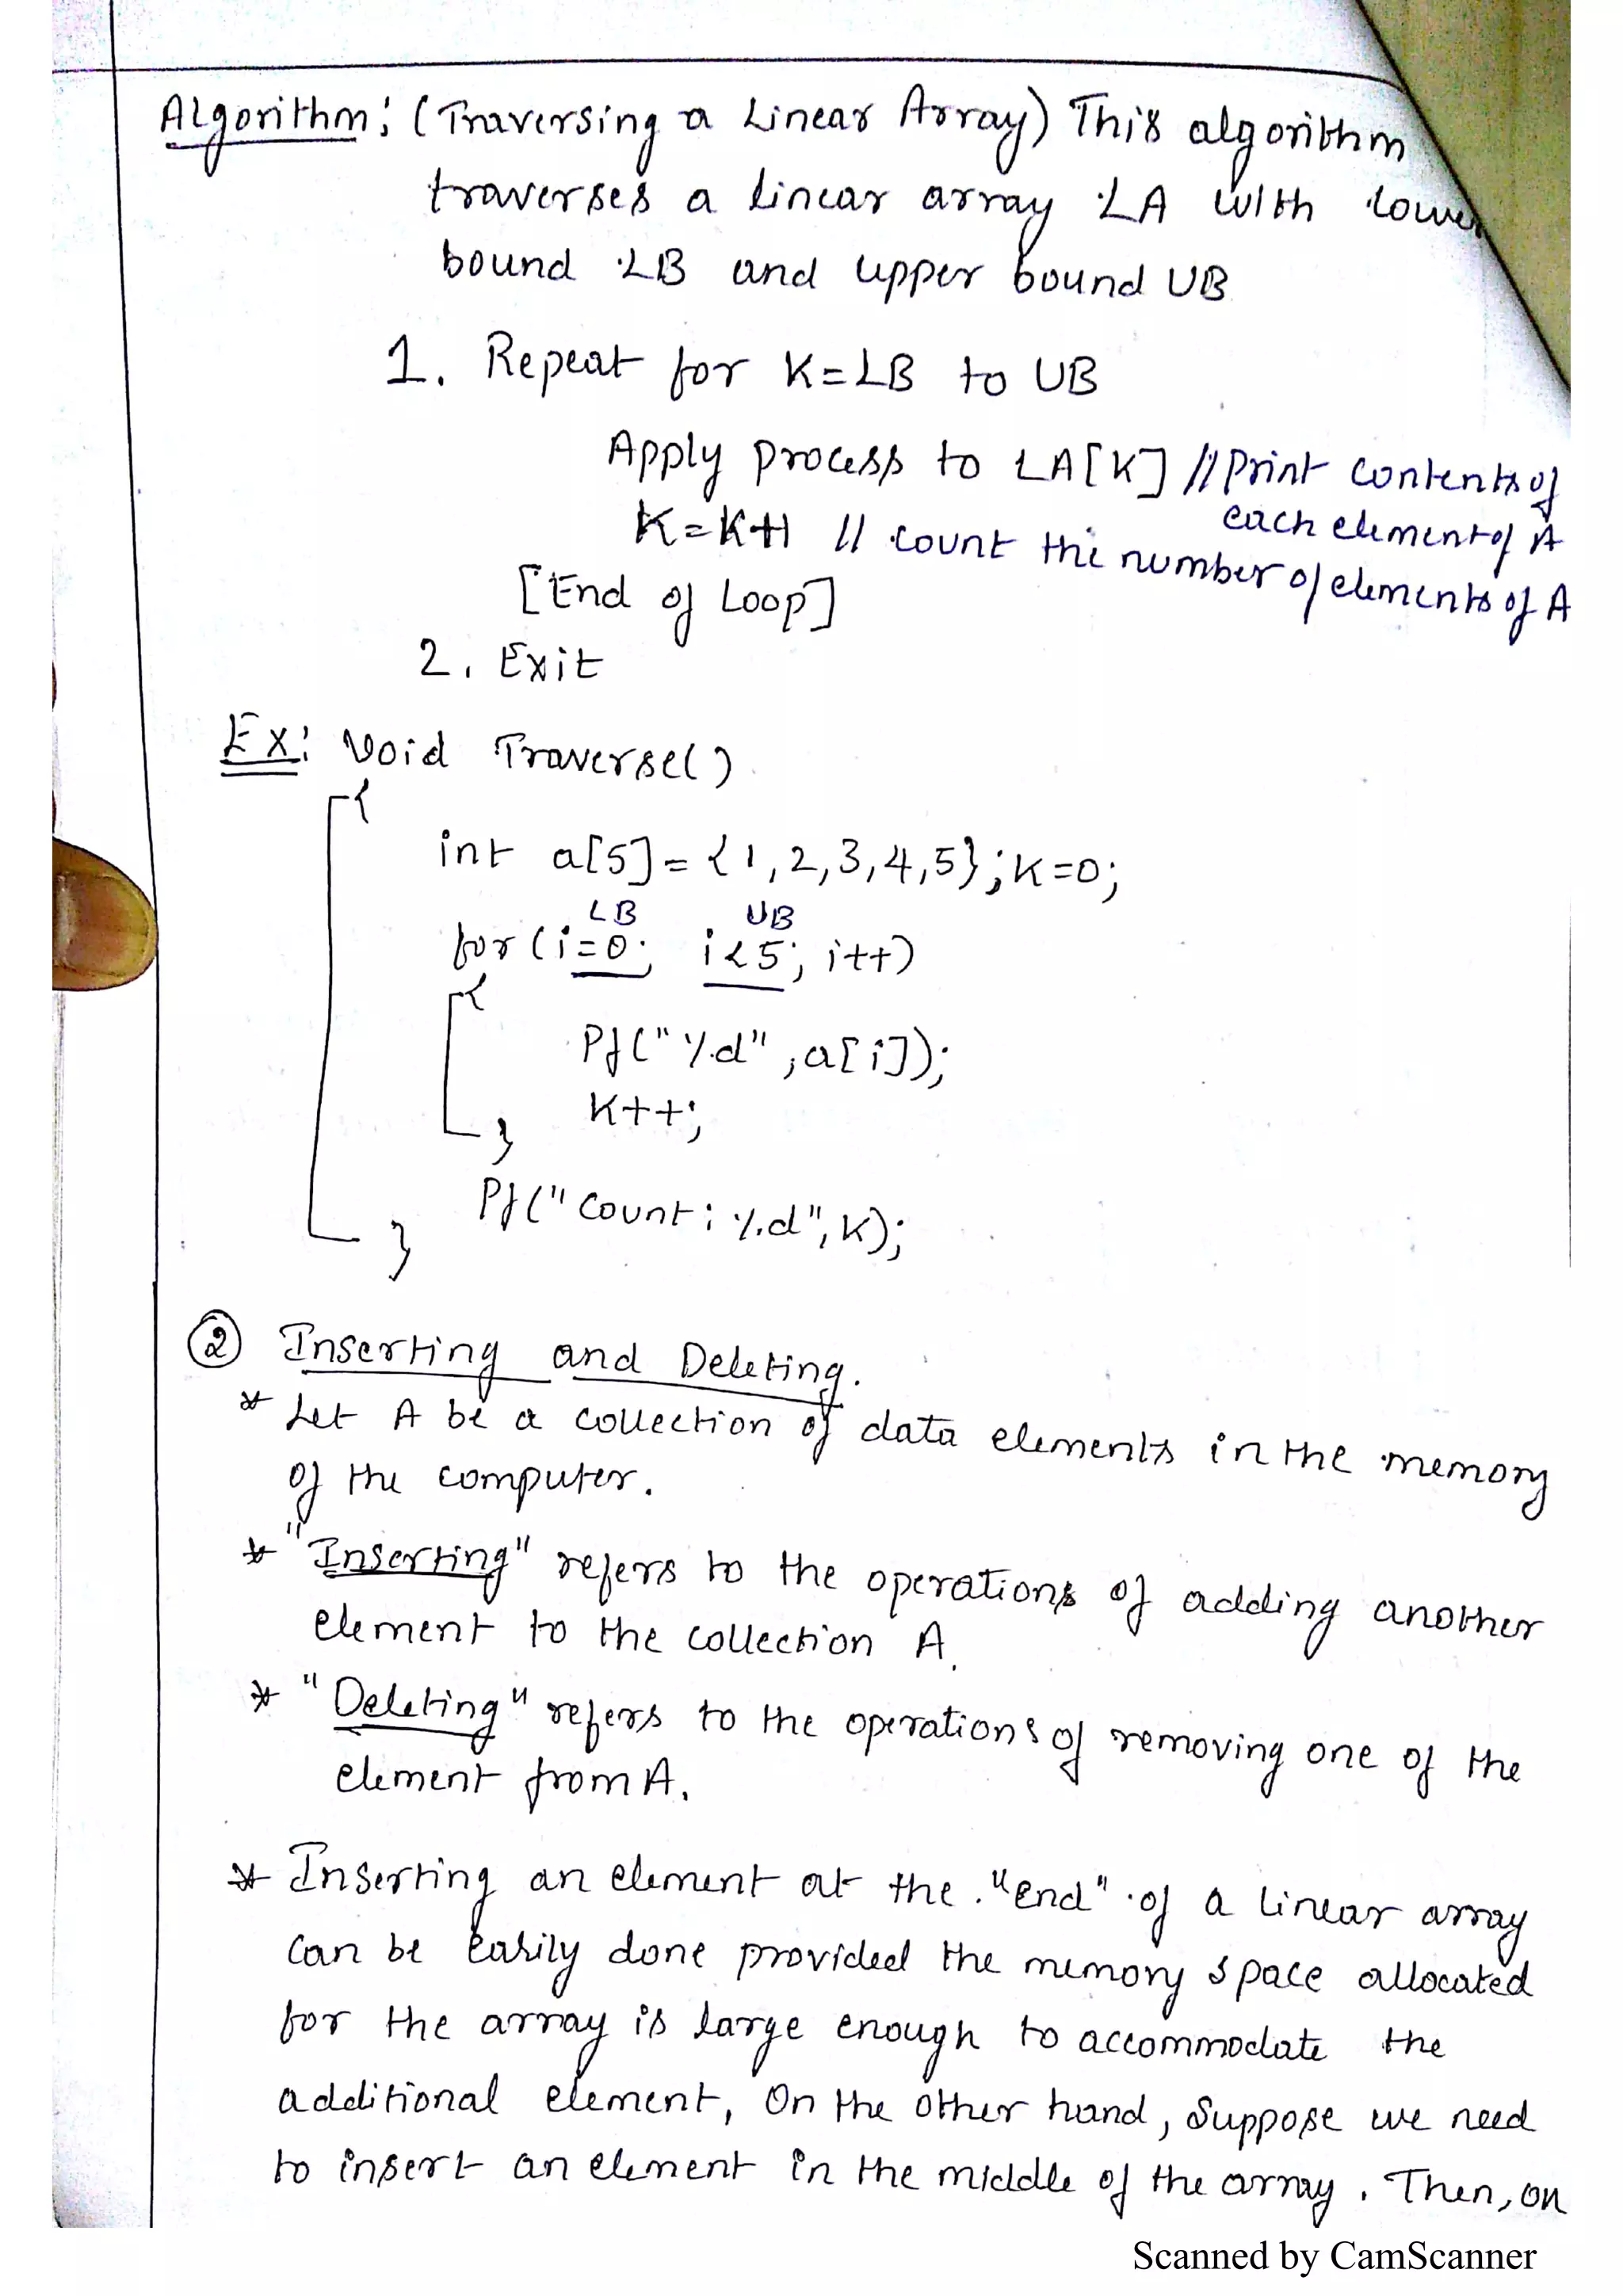 Algorithm: (Traversing a Linear Array) This algorithm
traverses a linear array LA with lower
bound LB and upper bound UB
1. Repeat for K=LB to UB
Apply process to LA[K] // Print contents of
each element of A
K=K+1 // count the number of elements of A
[End of Loop]
2. Exit
Ex: Void Traverse()
{
int a[5]={1,2,3,4,5}; K=0;
LB UB
for(i=0; i<5; i++)
{
Pf("%d",a[i]);
K++;
}
Pf("Count: %d",K);
}
② Inserting and Deleting.
* Let A be a collection of data elements in the memory
of the computer.
* "Inserting" refers to the operations of adding another
element to the collection A.
* "Deleting" refers to the operations of removing one of the
element from A.
* Inserting an element at the "end" of a linear array
can be easily done provided the memory space allocated
for the array is large enough to accommodate the
additional element, On the other hand, Suppose we need
to insert an element in the middle of the array. Then, on
Scanned by CamScanner